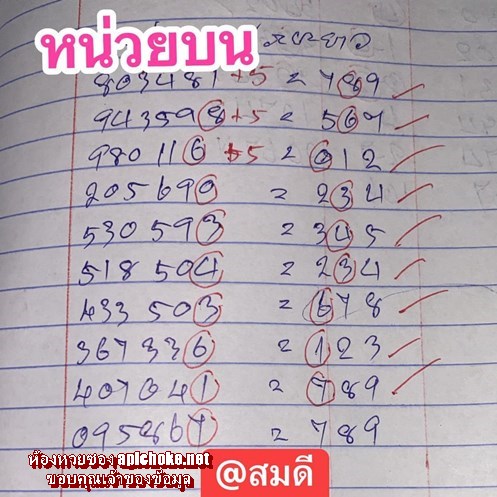 หน่วยบน ระยะยาว
803481+5 = 789
943598+5 = 567
980116+5 = 012
205690 = 234
530593 = 345
518504 = 234
433503 = 678
367336 = 123
407041 = 789
095867 = 789
ห้องหวยซอง apichoke.net
ขอบคุณเจ้าของข้อมูล
@สมดี